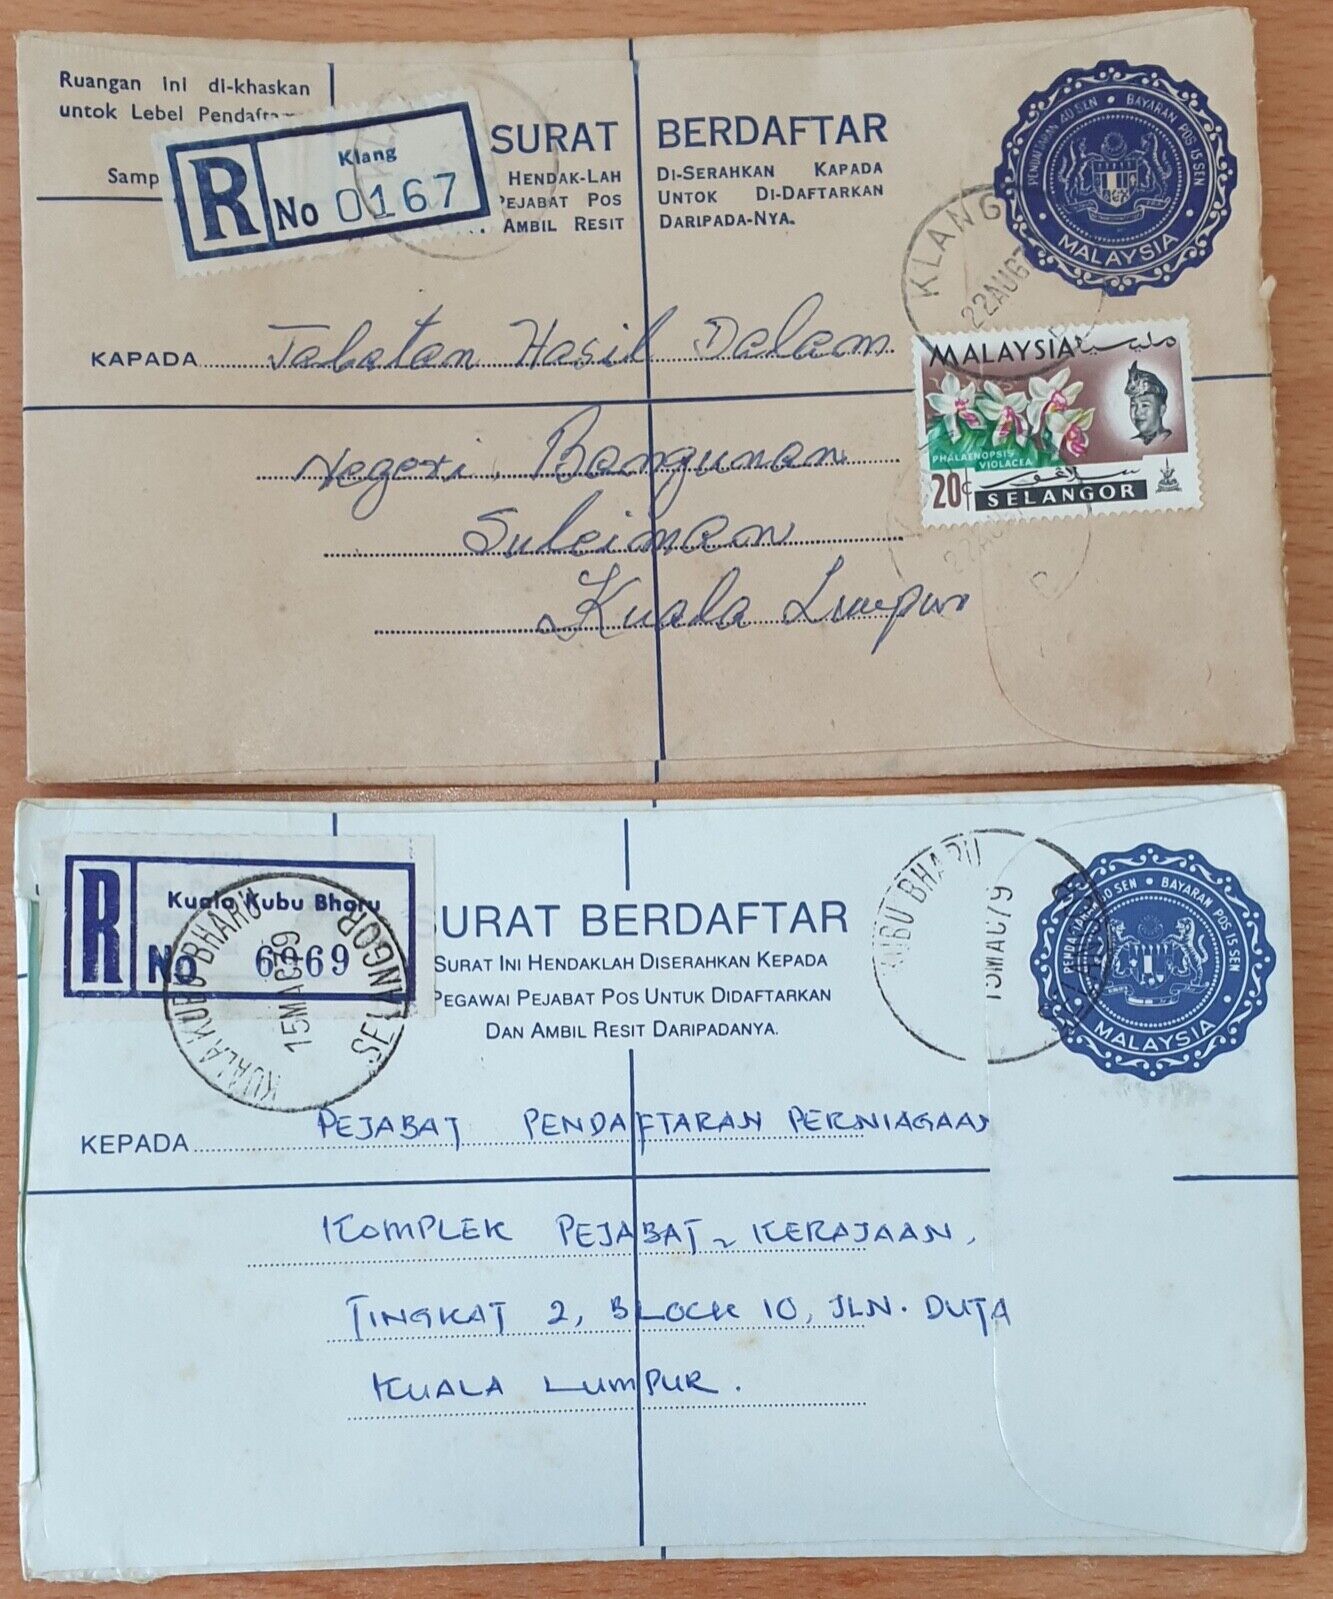 Ruangan ini di-khaskan
untok Lebel
Samp
R
Klang
No 0167
SURAT BERDAFTAR
HENDAK-LAH DI-SERAHKAN KAPADA
PEJABAT POS UNTOK DI-DAFTARKAN
AMBIL RESIT DARIPADA-NYA.
PENDAFTARAN 40 SEN • BAYARAN POS 15 SEN
MALAYSIA
KLANG
22AUG67
KAPADA Jabatan Hasil Dalam
Negeri, Bangunan
Suleiman
Kuala Lumpur
MALAYSIA مليسيا
PHALAENOPSIS
VIOLACEA
20c
سلاڠور
SELANGOR
R
Kuala Kubu Bharu
No 6469
KUALA KUBU BHARU
15MAC79
SELANGOR
SURAT BERDAFTAR
SURAT INI HENDAKLAH DISERAHKAN KEPADA
PEGAWAI PEJABAT POS UNTUK DIDAFTARKAN
DAN AMBIL RESIT DARIPADANYA.
KUBU BHARU
15MAC79
SELANGOR
BAYARAN POS 15 SEN
MALAYSIA
KEPADA PEJABAT PENDAFTARAN PERNIAGAAN
KOMPLEK PEJABAT-KERAJAAN,
TINGKAT 2, BLOCK 10, JLN. DUTA
KUALA LUMPUR.